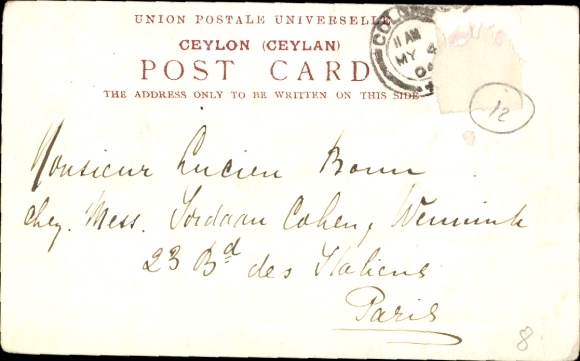 UNION POSTALE UNIVERSELLE
CEYLON (CEYLAN)
POST CARD
THE ADDRESS ONLY TO BE WRITTEN ON THIS SIDE
11 AM
MY 4
12
Monsieur Lucien Bonn
chez Mess. Jordaan Cohen, Wennink
23 Bd des Italiens
Paris
8